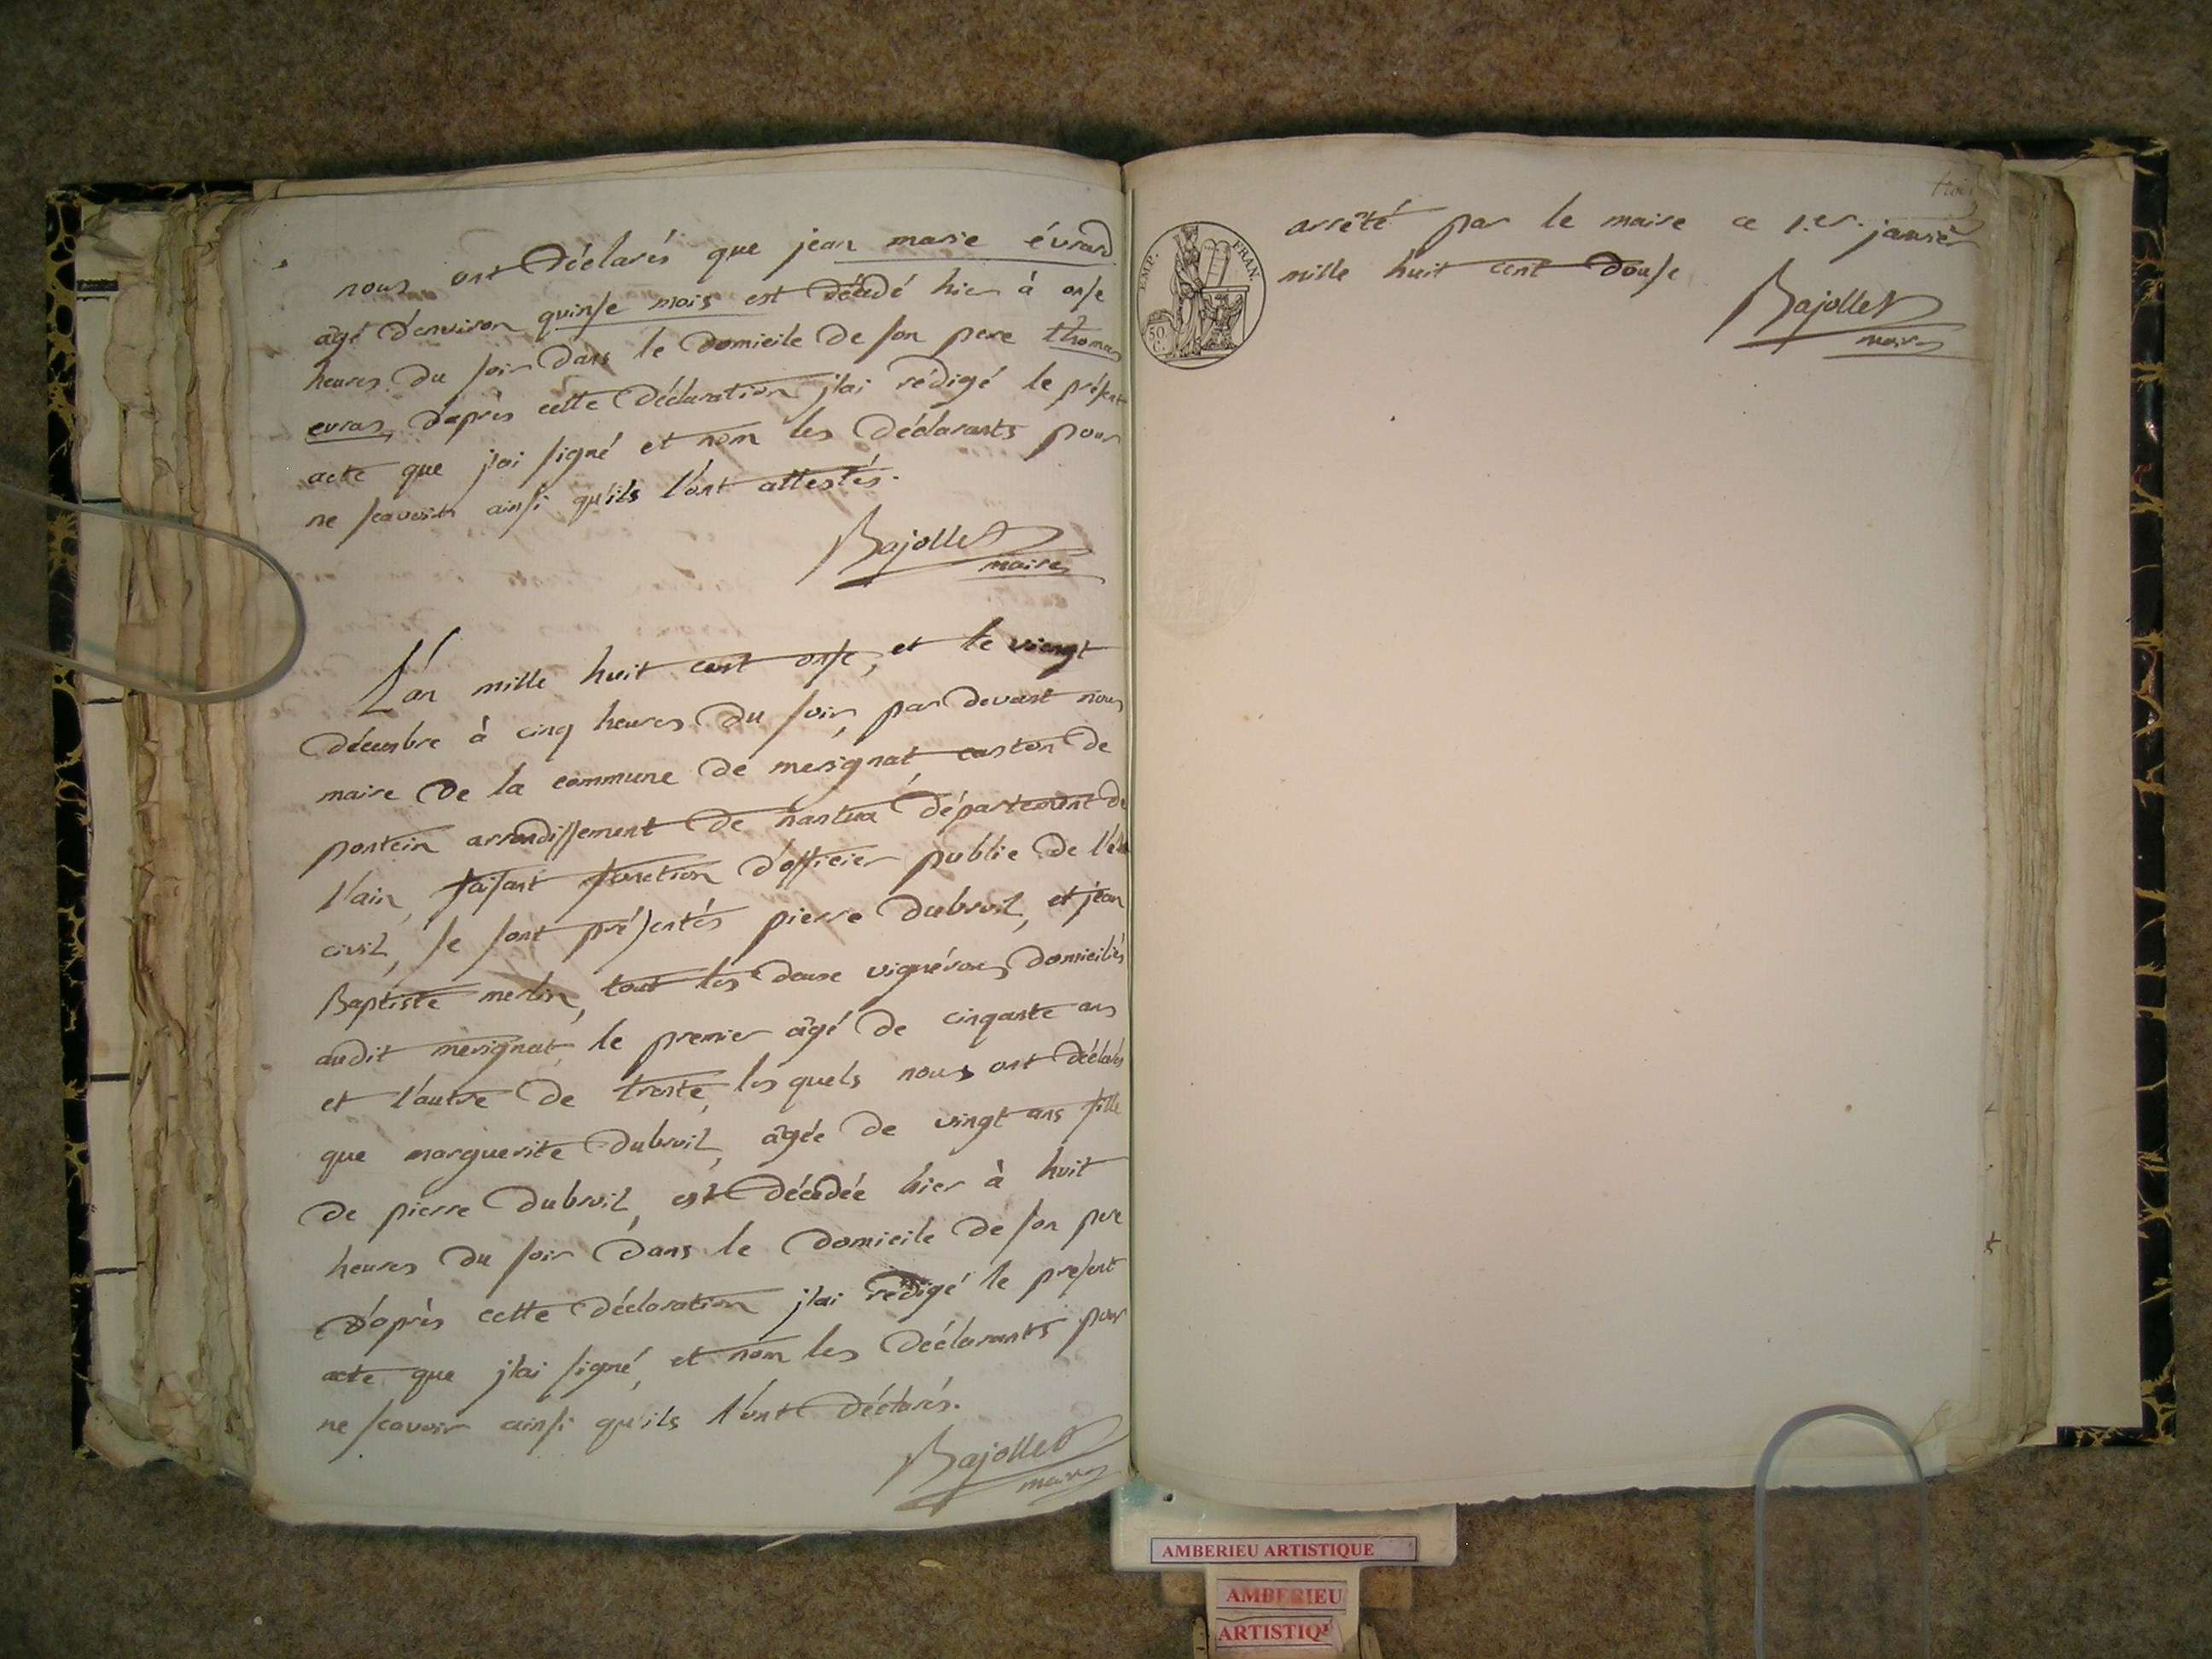 nous ont déclarés que jean marie évrard
âgé d'environ quinse mois est décédé hier à onse
heures du soir dans le domicile de son pere thomas
evrard, d'après cette déclaration j'ai rédigé le présent
acte que j'ai signé et nom les déclarants pour
ne scavoir ainsi qu'ils l'ont attestés.
Bajollet
maire
L'an mille huit cent onse, et le viengt
décembre à cinq heures du soir, par devant nous
maire de la commune de merignat, canton de
poncin arrondissement de nantua, département de
l'ain, faisant fonction d'officier publie de l'état
civil, se sont présentés pierre dubreuil, et jean
Baptiste merlin, tout les deux vignérons, domiciliés
audit merignat, le premier âgé de cinqante ans
et l'autre de trente, lesquels nous ont déclarés
que marguerite dubreuil, âgée de vingt ans fille
de pierre dubreuil, est décédée hier à huit
heures du soir dans le domicile de son pere
d'après cette déclaration j'ai rédigé le présent
acte que j'ai signé, et nom les déclarants pour
ne scavoir ainsi qu'ils l'ont déclarés.
Bajollet
maire
trois
EMP. FRAN.
50 C.
arrêté par le maire ce 1.er janvier
mille huit cent douse
Bajollet
maire
AMBERIEU ARTISTIQUE
AMBERIEU
ARTISTIQU